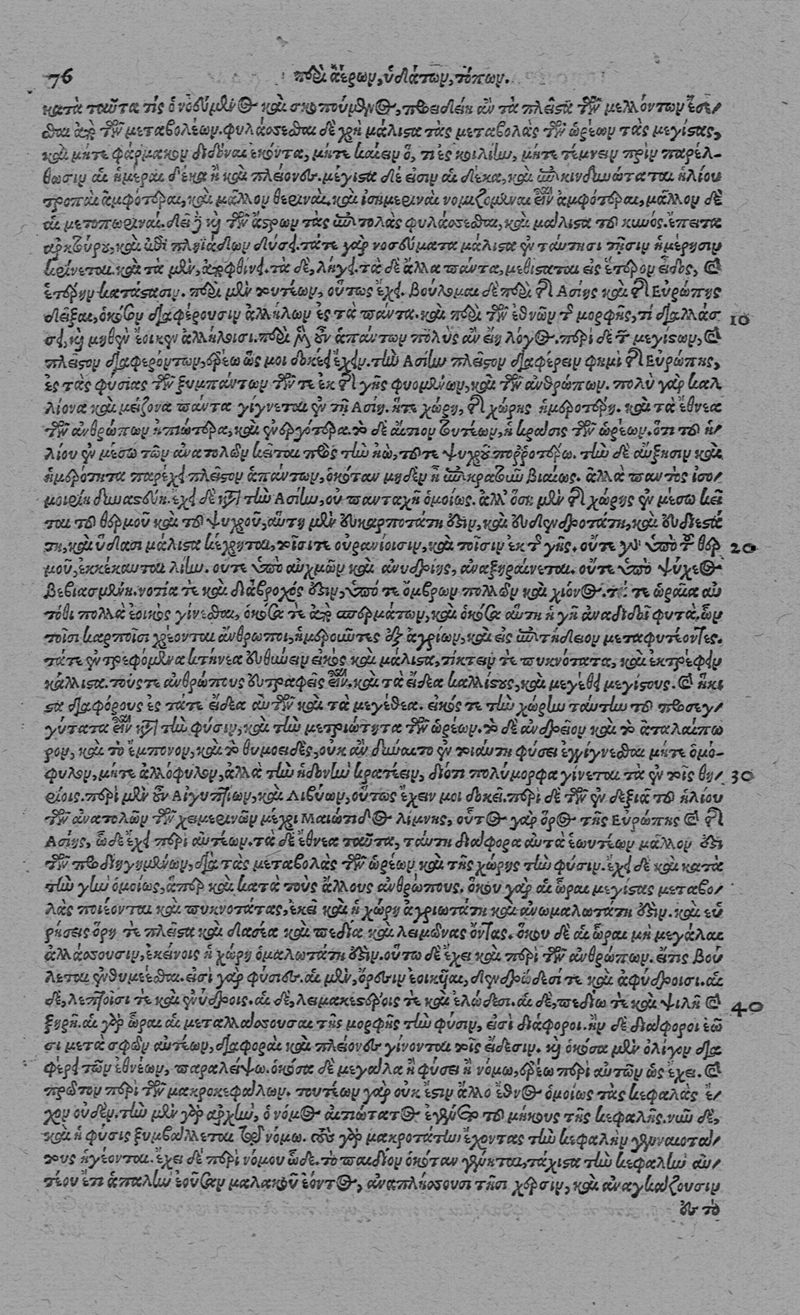 76 περὶ ἀέρων, ὑδάτων, τόπων.
κατὰ ταῦτα τὶς ὁ νοεύμενος καὶ σκοπούμενος, προειδείη ἂν τὰ πλεῖστα τῶν μελλόντων ἔσε/
σθαι ἀπὸ τῶν μεταβολέων. φυλάσσεσθαι δὲ χρὴ μάλιστα τὰς μεταβολὰς τῶν ὡρέων τὰς μεγίστας,
καὶ μήτε φάρμακον διδόναι ἑκόντα, μήτε καίειν ὅ, τι ἐς κοιλίην, μήτε τέμνειν πρὶν παρέλ-
θωσιν αἱ ἡμέραι δέκα ἢ καὶ πλείονες. μέγισται δέ εἰσιν αἱ δέκα, καὶ ἐπικινδυνώταται ἡλίου
τροπαὶ ἀμφότεραι, καὶ μᾶλλον θεριναὶ. καὶ ἰσημεριναὶ νομιζόμεναι εἶναι ἀμφότεραι, μᾶλλον δὲ
αἱ μετοπωριναί. δεῖ δὲ καὶ τῶν ἄστρων τὰς ἐπιτολὰς φυλάσσεσθαι, καὶ μάλιστα τοῦ κυνός. ἔπειτα
ἀρκτούρου, καὶ ἐπὶ πληϊάδων δύσει. τά τε γὰρ νοσεύματα μάλιστα ἐν ταύτησι τῇσιν ἡμέρῃσιν
κρίνεται. καὶ τὰ μὲν, ἀποφθίνει. τὰ δὲ, λήγει. τὰ δὲ ἄλλα πάντα, μεθίσταται εἰς ἕτερον εἶδος, καὶ
ἑτέρην κατάστασιν. περὶ μὲν τουτέων, οὕτως ἔχει. βούλομαι δὲ περὶ τῆς Ἀσίης καὶ τῆς Εὐρώπης
δεῖξαι, ὁκόσον διαφέρουσιν ἀλλήλων ἐς τὰ πάντα. καὶ περὶ τῶν ἐθνῶν τῆς μορφῆς, τί διαλλάσ 10
σει, καὶ μηθὲν ἔοικεν ἀλλήλοισι. περὶ μὲν οὖν ἁπάντων πολὺς ἂν εἴη λόγος. περὶ δὲ τῶν μεγίστων, καὶ
πλεῖστον διαφερόντων, ἐρέω ὥς μοι δοκέει ἔχειν. τὴν Ἀσίην πλεῖστον διαφέρειν φημὶ τῆς Εὐρώπης,
ἐς τὰς φύσιας τῶν ξυμπάντων τῶν τε ἐκ τῆς γῆς φυομένων, καὶ τῶν ἀνθρώπων. πολὺ γὰρ καλ
λίονα καὶ μείζονα πάντα γίγνεται ἐν τῇ Ἀσίῃ. ἥτε χώρη, τῆς χώρης ἡμεροτέρη. καὶ τὰ ἔθνεα
τῶν ἀνθρώπων ἠπιώτερα, καὶ εὐοργότερα. τὸ δὲ αἴτιον τουτέων, ἡ κρᾶσις τῶν ὡρέων. ὅτι τοῦ ἡ/
λίου ἐν μέσῳ τῶν ἀνατολῶν κεῖται πρὸς τὴν ἠῶ, τοῦ τε ψυχροῦ πορρωτέρω. τὴν δὲ αὔξησιν καὶ
ἡμερότητα παρέχει πλεῖστον ἁπάντων, ὁκόταν μηδὲν ᾖ ἐπικρατοῦν βιαίως. ἀλλὰ παντὸς ἰσο/
μοιρίη δυναστεύῃ. ἔχει δὲ κατὰ τὴν Ἀσίην, οὐ πανταχῆ ὁμοίως. ἀλλ' ὅση μὲν τῆς χώρης ἐν μέσῳ κεῖ
ται τοῦ θερμοῦ καὶ τοῦ ψυχροῦ, αὕτη μὲν εὐκαρποτάτη ἐστὶν, καὶ εὐδενδροτάτη, καὶ εὐδιεστά
τη, καὶ ὕδασι μάλιστα κέχρηται, τοῖσι τε οὐρανίοισιν, καὶ τοῖσιν ἐκ τῆς γῆς. οὔτε γὰρ ὑπὸ τοῦ θερ 20
μοῦ, ἐκκέκαυται λίην. οὔτε ὑπὸ αὐχμῶν καὶ ἀνυδρίης, ἀναξηραίνεται. οὔτε ὑπὸ ψύχεος
βεβιασμένη. νοτίη τε καὶ διάβροχός ἐστιν, ὑπό τε ὄμβρων πολλῶν καὶ χιόνος. τά τε ὡραῖα αὐ
τόθι πολλὰ ἐοικὸς γίνεσθαι, ὁκόσα τε ἀπὸ σπερμάτων, καὶ ὁκόσα αὐτὴ ἡ γῆ ἀναδιδοῖ φυτά. ὧν
τοῖσι καρποῖσι χρέονται ἄνθρωποι, ἡμεροῦντες ἐξ ἀγρίων, καὶ εἰς ἐπιτήδειον μεταφυτέοντες.
τά τε ἐντρεφόμενα κτήνεα εὐθηνεῖν εἰκὸς καὶ μάλιστα, τίκτειν τε πυκνότατα, καὶ ἐκτρέφειν
κάλλιστα. τούς τε ἀνθρώπους εὐτραφεῖς εἶναι. καὶ τὰ εἴδεα καλλίστους, καὶ μεγέθει μεγίστους. καὶ ἥκι
στα διαφόρους ἔς τε τὰ εἴδεα αὐτῶν καὶ τὰ μεγέθεα. εἰκός τε τὴν χώρην ταύτην τοῦ ἦρος ἐγ/
γύτατα εἶναι κατὰ τὴν φύσιν, καὶ τὴν μετριότητα τῶν ὡρέων. τὸ δὲ ἀνδρεῖον καὶ τὸ ἀταλαίπω
ρον, καὶ τὸ ἔμπονον, καὶ τὸ θυμοειδὲς, οὐκ ἂν δύναιτο ἐν τοιαύτῃ φύσει ἐγγίγνεσθαι μήτε ὁμό-
φυλον, μήτε ἀλλόφυλον, ἀλλὰ τὴν ἡδονὴν κρατέειν, διότι πολύμορφα γίνεται τὰ ἐν τοῖς θη/ 30
ρίοις. περὶ μὲν οὖν Αἰγυπτίων, καὶ Λιβύων, οὕτως ἔχειν μοι δοκεῖ. περὶ δὲ τῶν ἐν δεξιᾷ τοῦ ἡλίου
τῶν ἀνατολῶν τῶν χειμερινῶν μέχρι Μαιώτιδος λίμνης, οὗτος γὰρ ὅρος τῆς Εὐρώπης καὶ τῆς
Ἀσίης, ὧδε ἔχει περὶ αὐτέων. τὰ δὲ ἔθνεα ταῦτα, ταύτῃ διάφορα αὐτὰ ἑωυτέων μᾶλλον ἐστὶ
τῶν προδιηγημένων, διὰ τὰς μεταβολὰς τῶν ὡρέων καὶ τῆς χώρης τὴν φύσιν. ἔχει δὲ καὶ κατὰ
τὴν γῆν ὁμοίως, ἅπερ καὶ κατὰ τοὺς ἄλλους ἀνθρώπους. ὅκου γὰρ αἱ ὧραι μεγίστας μεταβο/
λὰς ποιέονται καὶ πυκνοτάτας, ἐκεῖ καὶ ἡ χώρη ἀγριωτάτη καὶ ἀνωμαλωτάτη ἐστίν. καὶ εὑ
ρήσεις ὄρη τε πλεῖστα καὶ δασέα καὶ πεδία καὶ λειμῶνας ὄντας. ὅκου δὲ αἱ ὧραι μὴ μεγάλαι
ἀλλάσσουσιν, ἐκείνοις ἡ χώρη ὁμαλωτάτη ἐστίν. οὕτω δὲ ἔχει καὶ περὶ τῶν ἀνθρώπων. εἴ τις βού
λεται ἐνθυμέεσθαι. εἰσὶ γὰρ φύσιες. αἱ μὲν, ὄρεσιν ἐοικυῖαι, δενδρώδεσί τε καὶ ἀφύδροισι. αἱ
δὲ, λεπτοῖσί τε καὶ ἐνύδροις. αἱ δὲ, λειμακεστέροις τε καὶ ἑλώδεσι. αἱ δὲ, πεδίῳ τε καὶ ψιλῇ καὶ 40
ξηρῇ. αἱ γὰρ ὧραι αἱ μεταλλάσσουσαι τῆς μορφῆς τὴν φύσιν, εἰσὶ διάφοροι. ἢν δὲ διάφοροι ἔω
σι μετὰ σφῶν αὐτέων, διαφοραὶ καὶ πλείονες γίνονται τοῖς εἴδεσιν. καὶ ὁκόσα μὲν ὀλίγον δια
φέρει τῶν ἐθνέων, παραλείψω. ὁκόσα δὲ μεγάλα ἢ φύσει ἢ νόμῳ, ἐρέω περὶ αὐτῶν ὡς ἔχει. καὶ
πρῶτον περὶ τῶν μακροκεφάλων. τουτέων γὰρ οὐκ ἔστιν ἄλλο ἔθνος ὁμοίως τὰς κεφαλὰς ἔ/
χον οὐδέν. τὴν μὲν γὰρ ἀρχὴν, ὁ νόμος αἰτιώτατος ἐγένετο τοῦ μήκους τῆς κεφαλῆς. νῦν δὲ,
καὶ ἡ φύσις ξυμβάλλεται τῷ νόμῳ. τοὺς γὰρ μακροτάτην ἔχοντας τὴν κεφαλὴν γενναιοτά/
τους ἡγέονται. ἔχει δὲ περὶ νόμου ὧδε. τὸ παιδίον ὁκόταν γένηται, τάχιστα τὴν κεφαλὴν αὐ/
τέου ἔτι ἁπαλὴν ἐοῦσαν μαλακοῦ ἐόντος, ἀναπλήσσουσι τῇσι χερσὶν, καὶ ἀναγκάζουσιν
ἐς τὸ